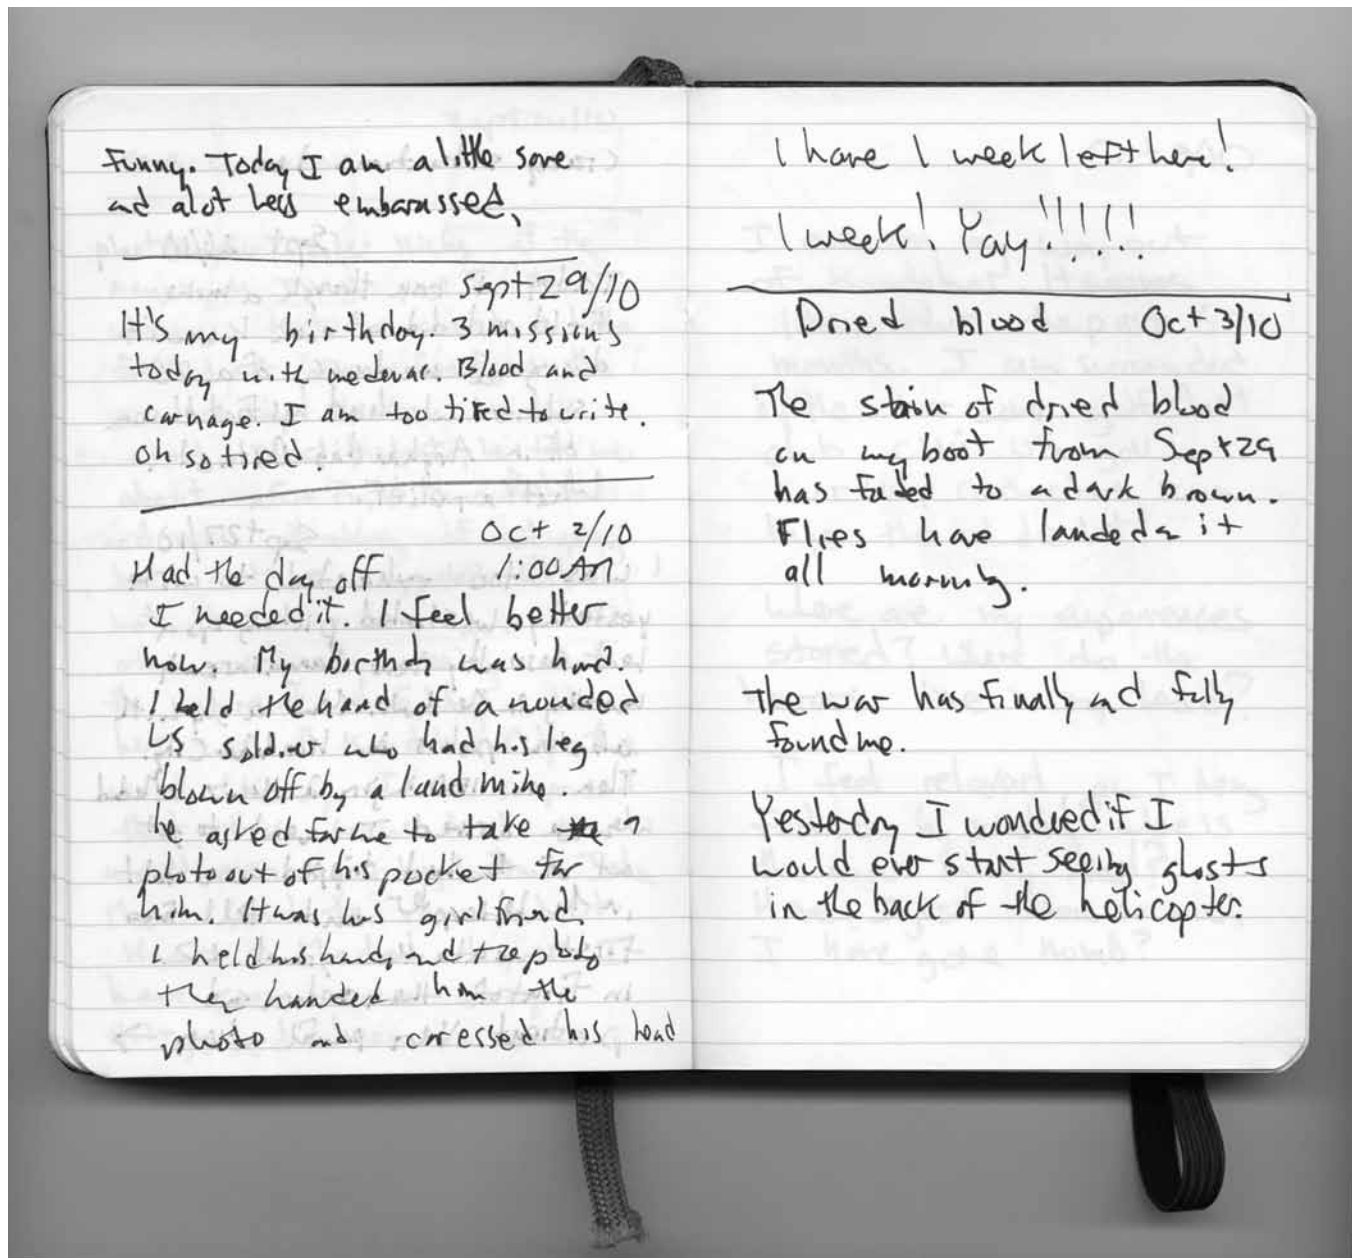 Funny. Today I am a little sore
and alot less embarassed.
Sept 29/10
It's my birthday. 3 missions
today with medevac. Blood and
carnage. I am too tired to write.
oh so tired.
Oct 2/10
Had the day off 1:00 AM
I needed it. I feel better
now. My birthday was hard.
I held the hand of a wounded
US soldier who had his leg
blown off by a land mine.
he asked for me to take a
photo out of his pocket for
him. It was his girlfriend.
I held his hand, and the photo
then handed him the
photo and caressed his head
I have 1 week left here!
1 week! Yay!!!!!
Dried blood Oct 3/10
The stain of dried blood
on my boot from Sept 29
has faded to a dark brown.
Flies have landed on it
all morning.
The war has finally and fully
found me.
Yesterday I wondered if I
would ever start seeing ghosts
in the back of the helicopter.